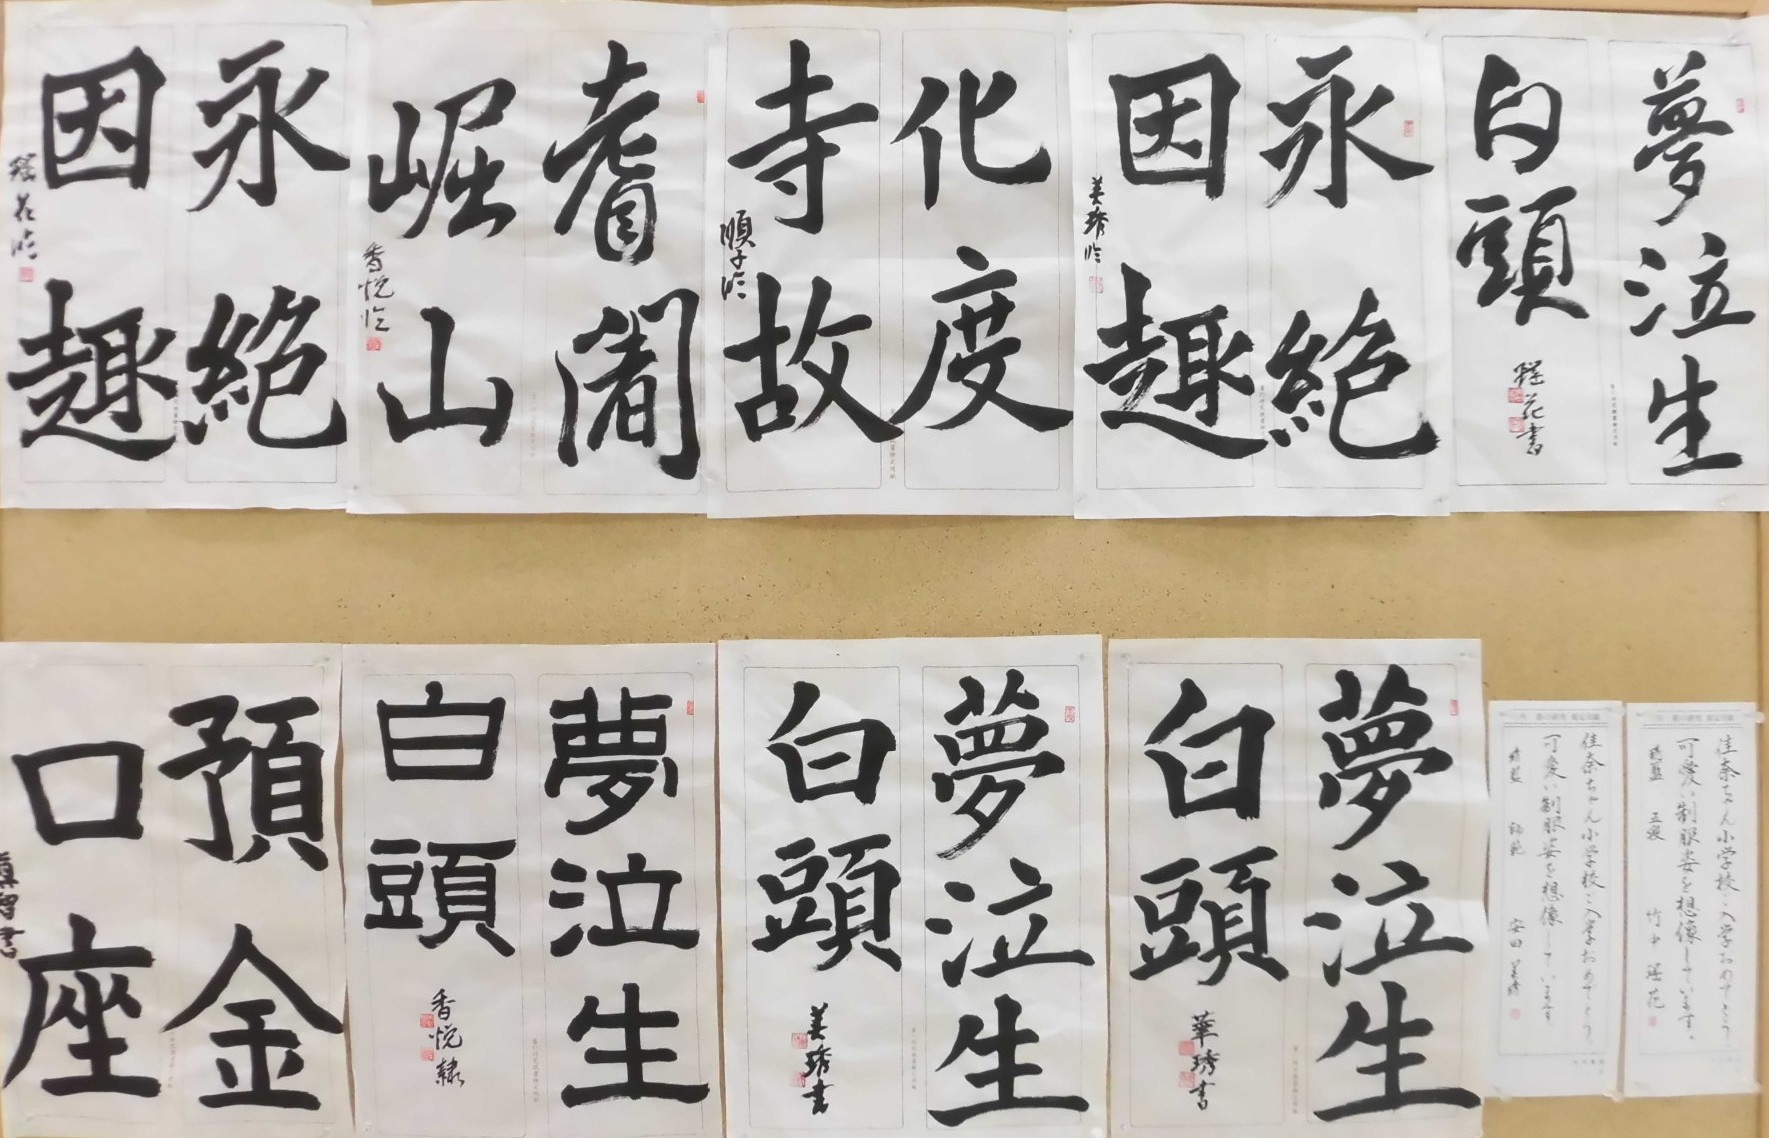 夢泣生
白頭
瑤花書
永絶
因趣
美琇臨
化度
寺故
順子臨
耆闍
崛山
香悦臨
永絶
因趣
瑤花臨
佳奈ちゃん小学校ご入学おめでとう。
可愛い制服姿を想像しています。
竹中 瑤花
佳奈ちゃん小学校ご入学おめでとう。
可愛い制服姿を想像しています
安田 美琇
夢泣生
白頭
華琇書
夢泣生
白頭
美琇書
夢泣生
白頭
香悦隷
預金
口座
真智書